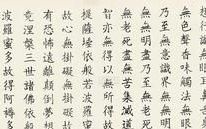 想行識無眼耳鼻
無色聲香味觸法無眼
乃至無意識界無
無明盡乃至無老
無老死盡無苦集滅道
智亦無得以無所得
提薩埵依般若波羅蜜
故心無掛礙無掛礙故
有恐怖遠離顛倒夢想
竟涅槃三世諸佛依
波羅蜜多故得阿耨多